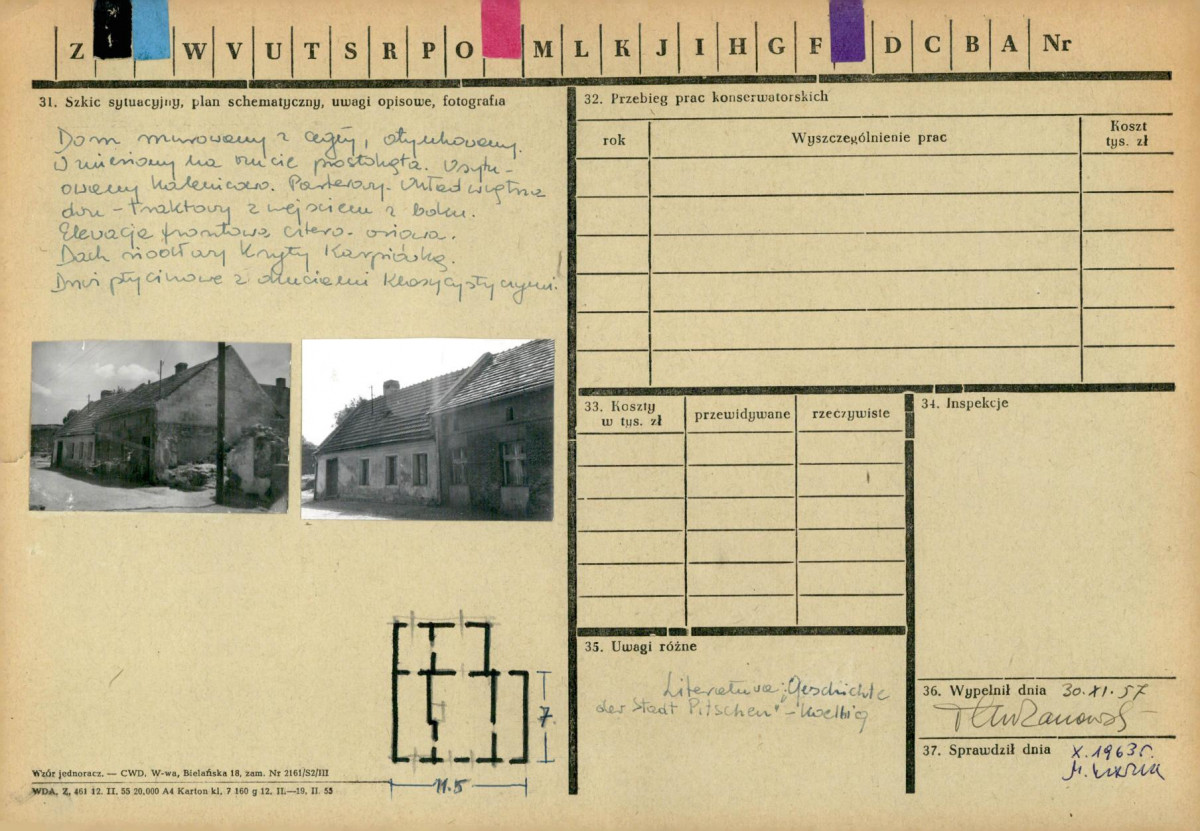 Z W V U T S R P O M L K J I H G F D C B A Nr
31. Szkic sytuacyjny, plan schematyczny, uwagi opisowe, fotografia
Dom murowany z cegły, otynkowany.
Wzniesiony na rzucie prostokąta. Usytu-
owany kalenicowo. Parterowy. Układ wnętrza
dwu-traktowy z wejściem z boku.
Elewacja frontowa cztero-osiowa.
Dach siodłowy kryty Karpiówką.
Drzwi płycinowe z okuciami klasycystycznymi.
7.
11.5
Wzór jednoracz. — CWD. W-wa, Bielańska 18, zam. Nr 2161/S2/III
WDA, Z. 461 12. II. 55 20.000 A4 Karton kl. 7 160 g 12. II.—19. II. 55
32. Przebieg prac konserwatorskich
rok Wyszczególnienie prac Koszt
tys. zł
33. Koszty
w tys. zł
przewidywane rzeczywiste
34. Inspekcje
35. Uwagi różne
Literatura: „Geschichte
der Stadt Pitschen" - Koelbig
36. Wypełnił dnia 30.XI.57
37. Sprawdził dnia X.1963 r.